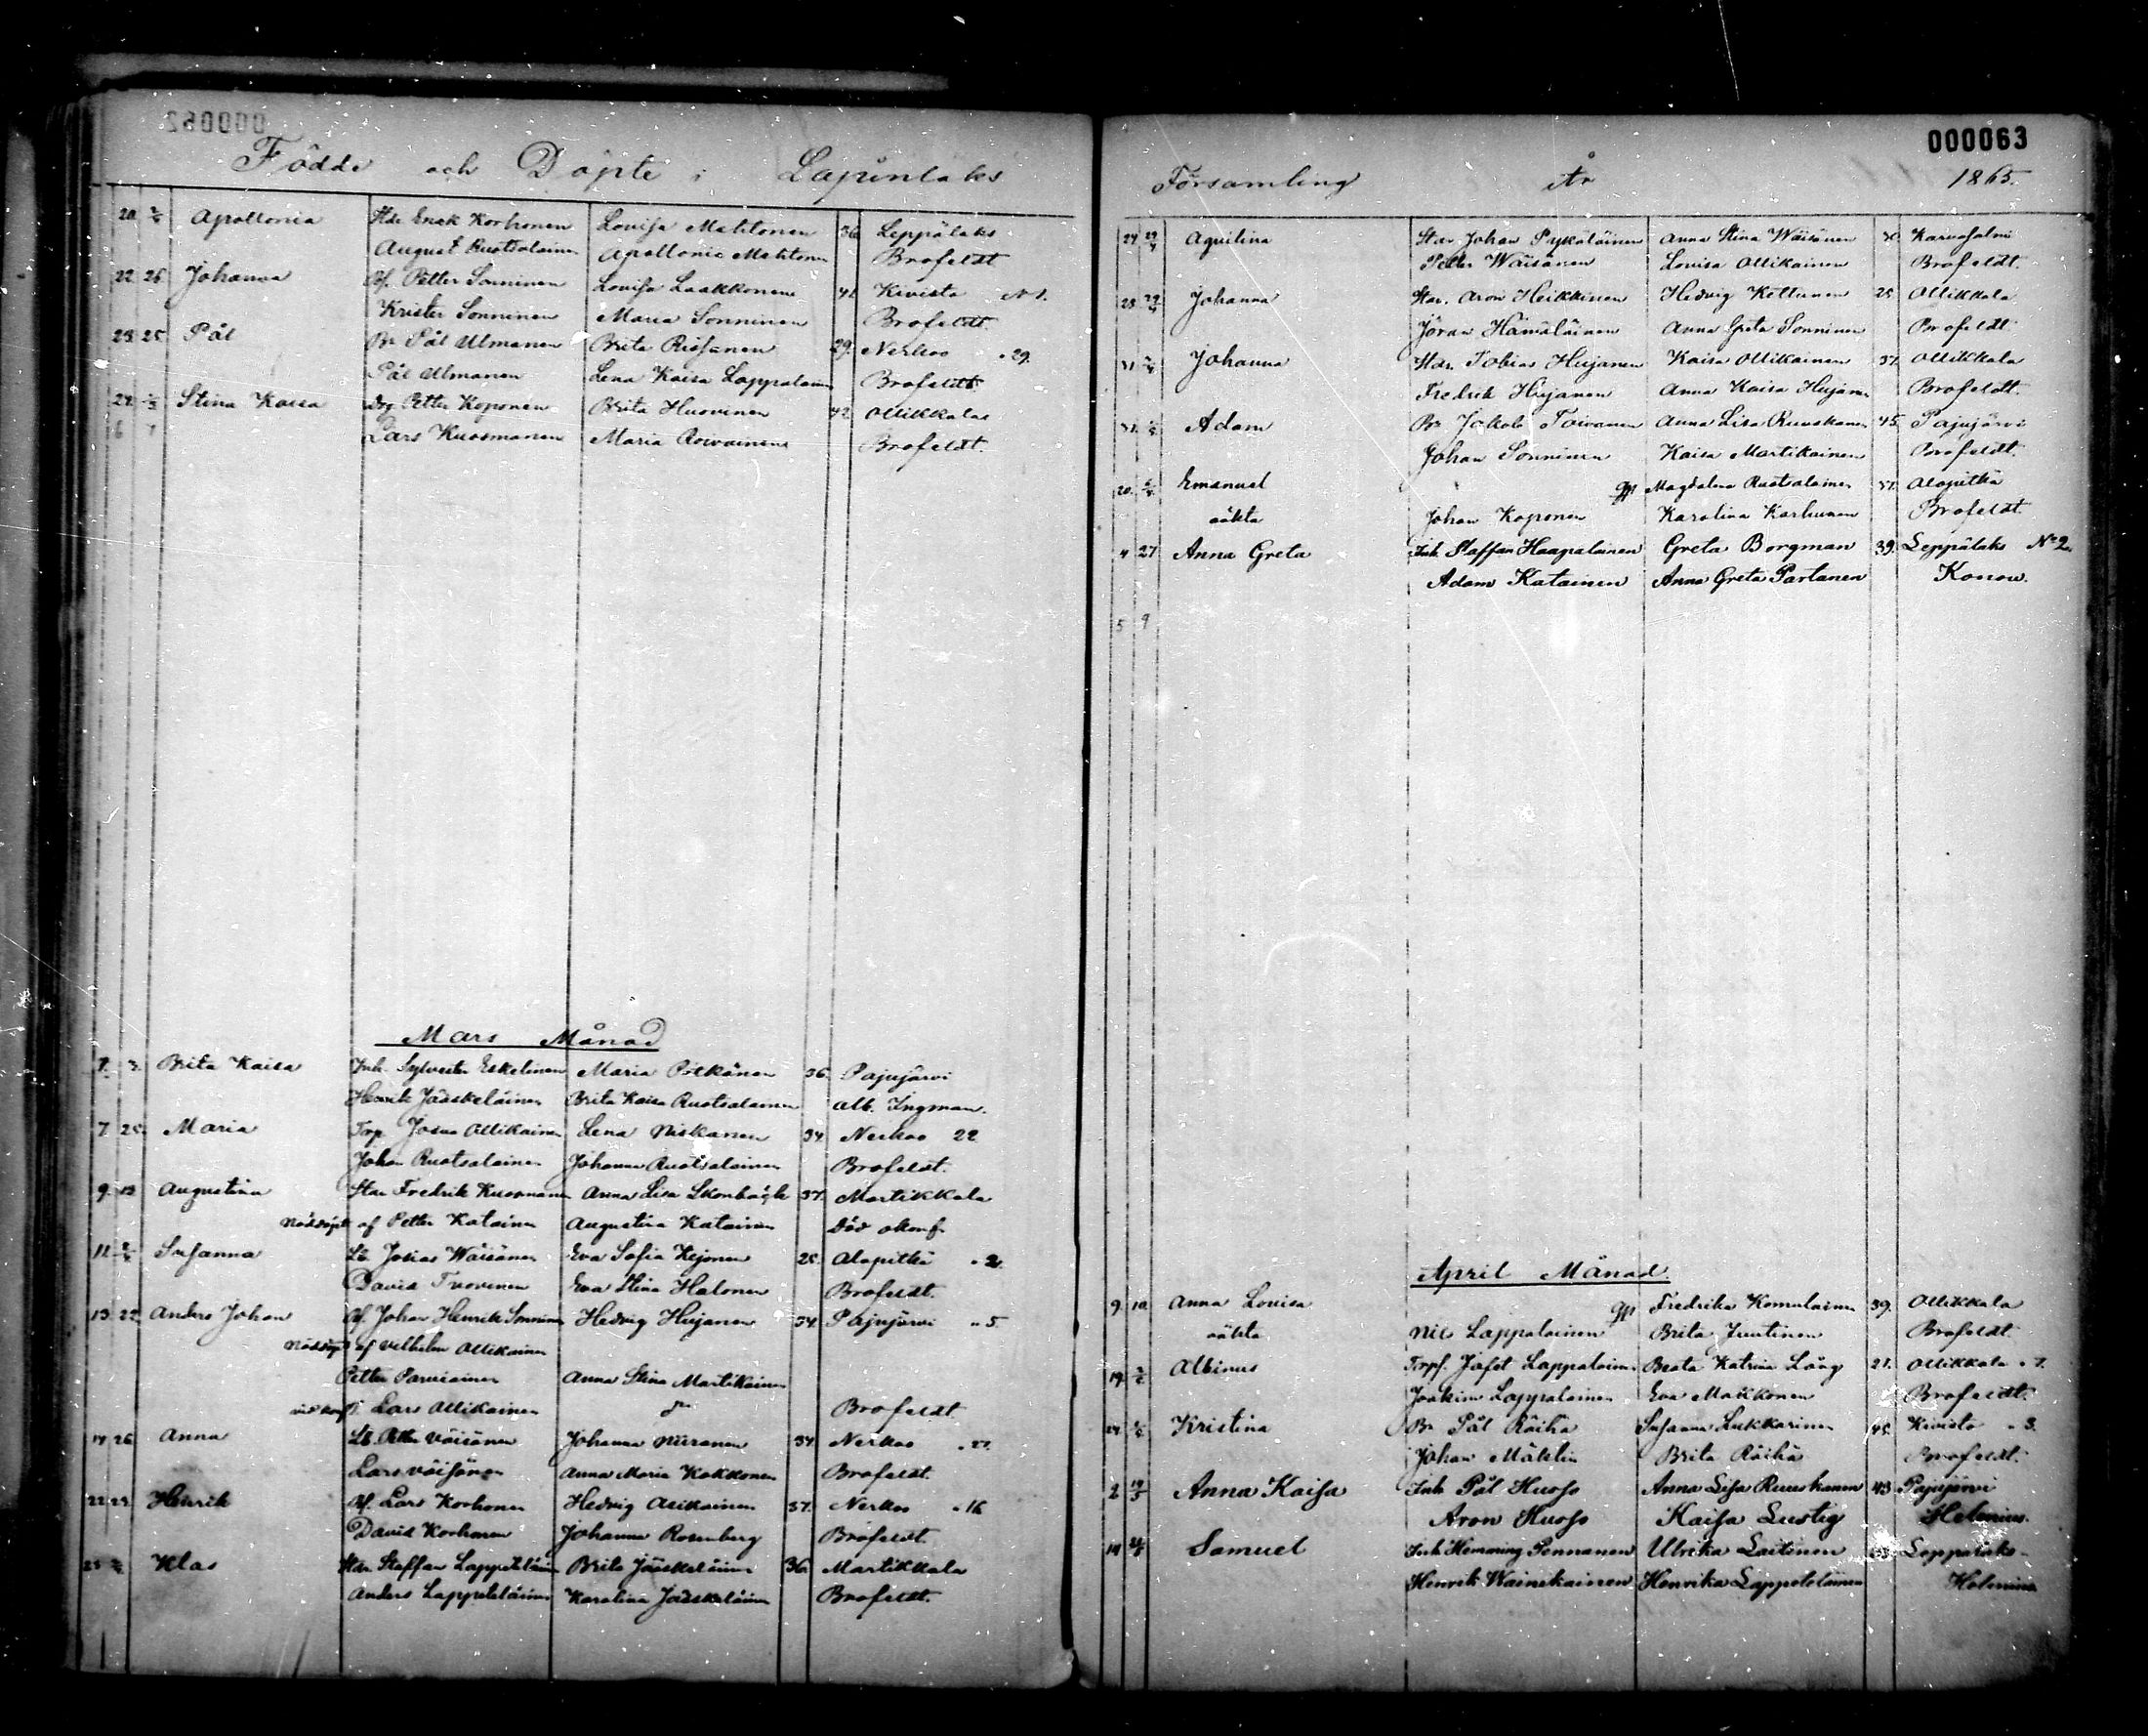 000062
Födde och Döpte i Lapinlaks
20. Apollonia Stdr Erick Korhonen Lovisa Mehtonen 36 Leppälaks
August Ruotsalainen Apollonia Mehtonen Brofeldt
22. 26 Johanna Bf. Petter Sonninen Lovisa Laakkonen 41 Kivistö N 1.
Krister Sonninen Maria Sonninen Brofeldt.
23. 25 Pål Br Pål Ulmanen Brita Rissanen 29. Nerkoo " 29.
Pål Ulmanen Lena Kaisa Lappalainen Brofeldt.
24. Stina Kaisa Drg Petter Koponen Brita Huovinen 42 Ollikkala
6 7 Lars Kuosmanen Maria Roivainen Brofeldt.
Mars Månad
7. 3. Brita Kaisa Inh. Sylvester Eskelinen Maria Pitkänen 36. Pajujärvi
Henrik Jääskeläinen Brita Kaisa Ruotsalainen Alb. Ingman.
7. 25. Maria Torp Josua Ollikainen Lena Niskanen 34. Nerkoo 22
Johan Ruotsalainen Johanna Ruotsalainen Brofeldt.
9. 13 Augustina Stdr Fredrik Kuosmanen Anna Lisa 37. Martikkala
Nöddöpt af Petter Katainen Augustina Katainen Död okonf.
11. Susanna Lb Josias Wäisänen Eva Sofia Kejonen 25. Alapitkä " 2.
David Tuovinen Eva Stina Halonen Brofeldt.
13. 22 Anders Johan Bf. Johan Henrik Sonninen Hedvig Hujanen 34. Pajujärvi " 5.
Nöddöpt af Vilhelm Ollikainen
Petter Parviainen Anna Stina Martikainen
vid konf. Lars Ollikainen Brofeldt.
14 26 Anna Lb. Petter Väisänen Johanna Niiranen 34. Nerkoo " 27.
Lars Väisänen Anna Maria Kokkonen Brofeldt.
22 29. Henrik Bf. Lars Korhonen Hedvig Asikainen 37. Nerkoo " 16
David Korhonen Johanna Rosenberg Brofeldt.
25 Klas Stdr Staffan Lappeteläinen Brita Jääskeläinen 36. Martikkala
Anders Lappeteläinen Karolina Jääskeläinen Brofeldt.
000063
Församling År 1865.
24 Aquilina Stdr Johan Pyykäläinen Anna Stina Wäisänen 30. Karvasalmi
Petter Wäisänen Lovisa Ollikainen Brofeldt.
28 Johanna Stdr. Aron Heikkinen Hedvig Kettunen 25 Ollikkala
Jöran Hämäläinen Anna Greta Sonninen Brofeldt
31 Johanna Stdr. Tobias Hujanen Kaisa Ollikainen 37. Ollikkala
Fredrik Hujanen Anna Kaisa Hujanen Brofeldt.
31. Adam Br Jakob Toivanen Anna Lisa Ruuskanen 45. Pajujärvi
Johan Sonninen Kaisa Martikainen Brofeldt.
20. Emanuel qp Magdalena Ruotsalainen 37. Alapitkä
oäkta Johan Koponen Karolina Karhunen Brofeldt.
4 27 Anna Greta Inh Staffan Haapalainen Greta Borgman 39. Leppälaks No 2.
Adam Katainen Anna Greta Partanen Konow.
5 9
April Månad.
9. 10. Anna Lovisa qp Fredrika Komulainen 39. Ollikkala
oäkta Nils Lappalainen Brita Juutinen Brofeldt.
19. Albinus Torpf. Jafet Lappalainen Beata Katrina Lång 21. Ollikkala " 7.
Joakim Lappalainen Eva Makkonen Brofeldt.
24 Kristina Br Pål Räihä Susanna Lukkarinen 45. Kivistö " 3.
Johan Mähtin Brita Räihä Brofeldt.
2 19/5 Anna Kaisa Inh Pål Kuosso Anna Lisa Ruuskanen 43 Pajujärvi
Aron Kuosso Kaisa Lustig Helenius.
14 Samuel Inh Hemming Pennanen Ulrika Laitinen Leppälaks
Henrik Wainikainen Henrika Lappeteläinen Helenius